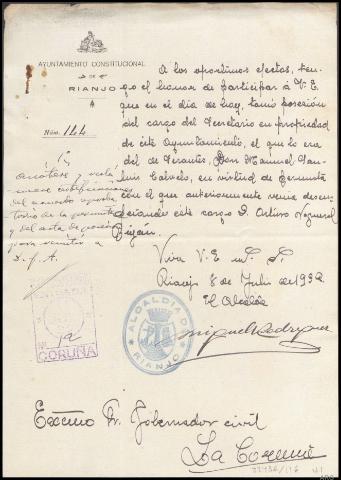 AYUNTAMIENTO CONSTITUCIONAL
DE
RIANJO
Núm. 144
A los oportunos efectos, ten-
go el honor de participar á V.E.
que en el día de hoy, tomó posesión
del cargo del Secretario en propiedad
de este Ayuntamiento, el que lo era
del de Serantes, Don Manuel San-
luis Calvelo, en virtud de permuta
con el que anteriormente venía desem-
peñando este cargo D. Arturo
Viva V.E. m. a.
Rianjo 8 de Julio de 1932
El Alcalde
Miguel Rodríguez
Anótese y
del acuerdo
de la permuta
y del acta de posesión
para remitir a
D. G. A.
CORUÑA
ALCALDÍA DE
RIANJO
Excmo Sr. Gobernador civil
La Coruña